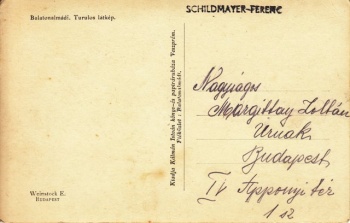 Balatonalmádi. Turulos látkép.
SCHILDMAYER-FERENC
Kiadja Kálmán István könyv- és papiráruháza Veszprém.
Fióküzlet: Balatonalmádi.
Nagyságos
Margittay Zoltán
Urnak
Budapest
IV Apponyi tér
1 sz
Weinstock E.
BUDAPEST